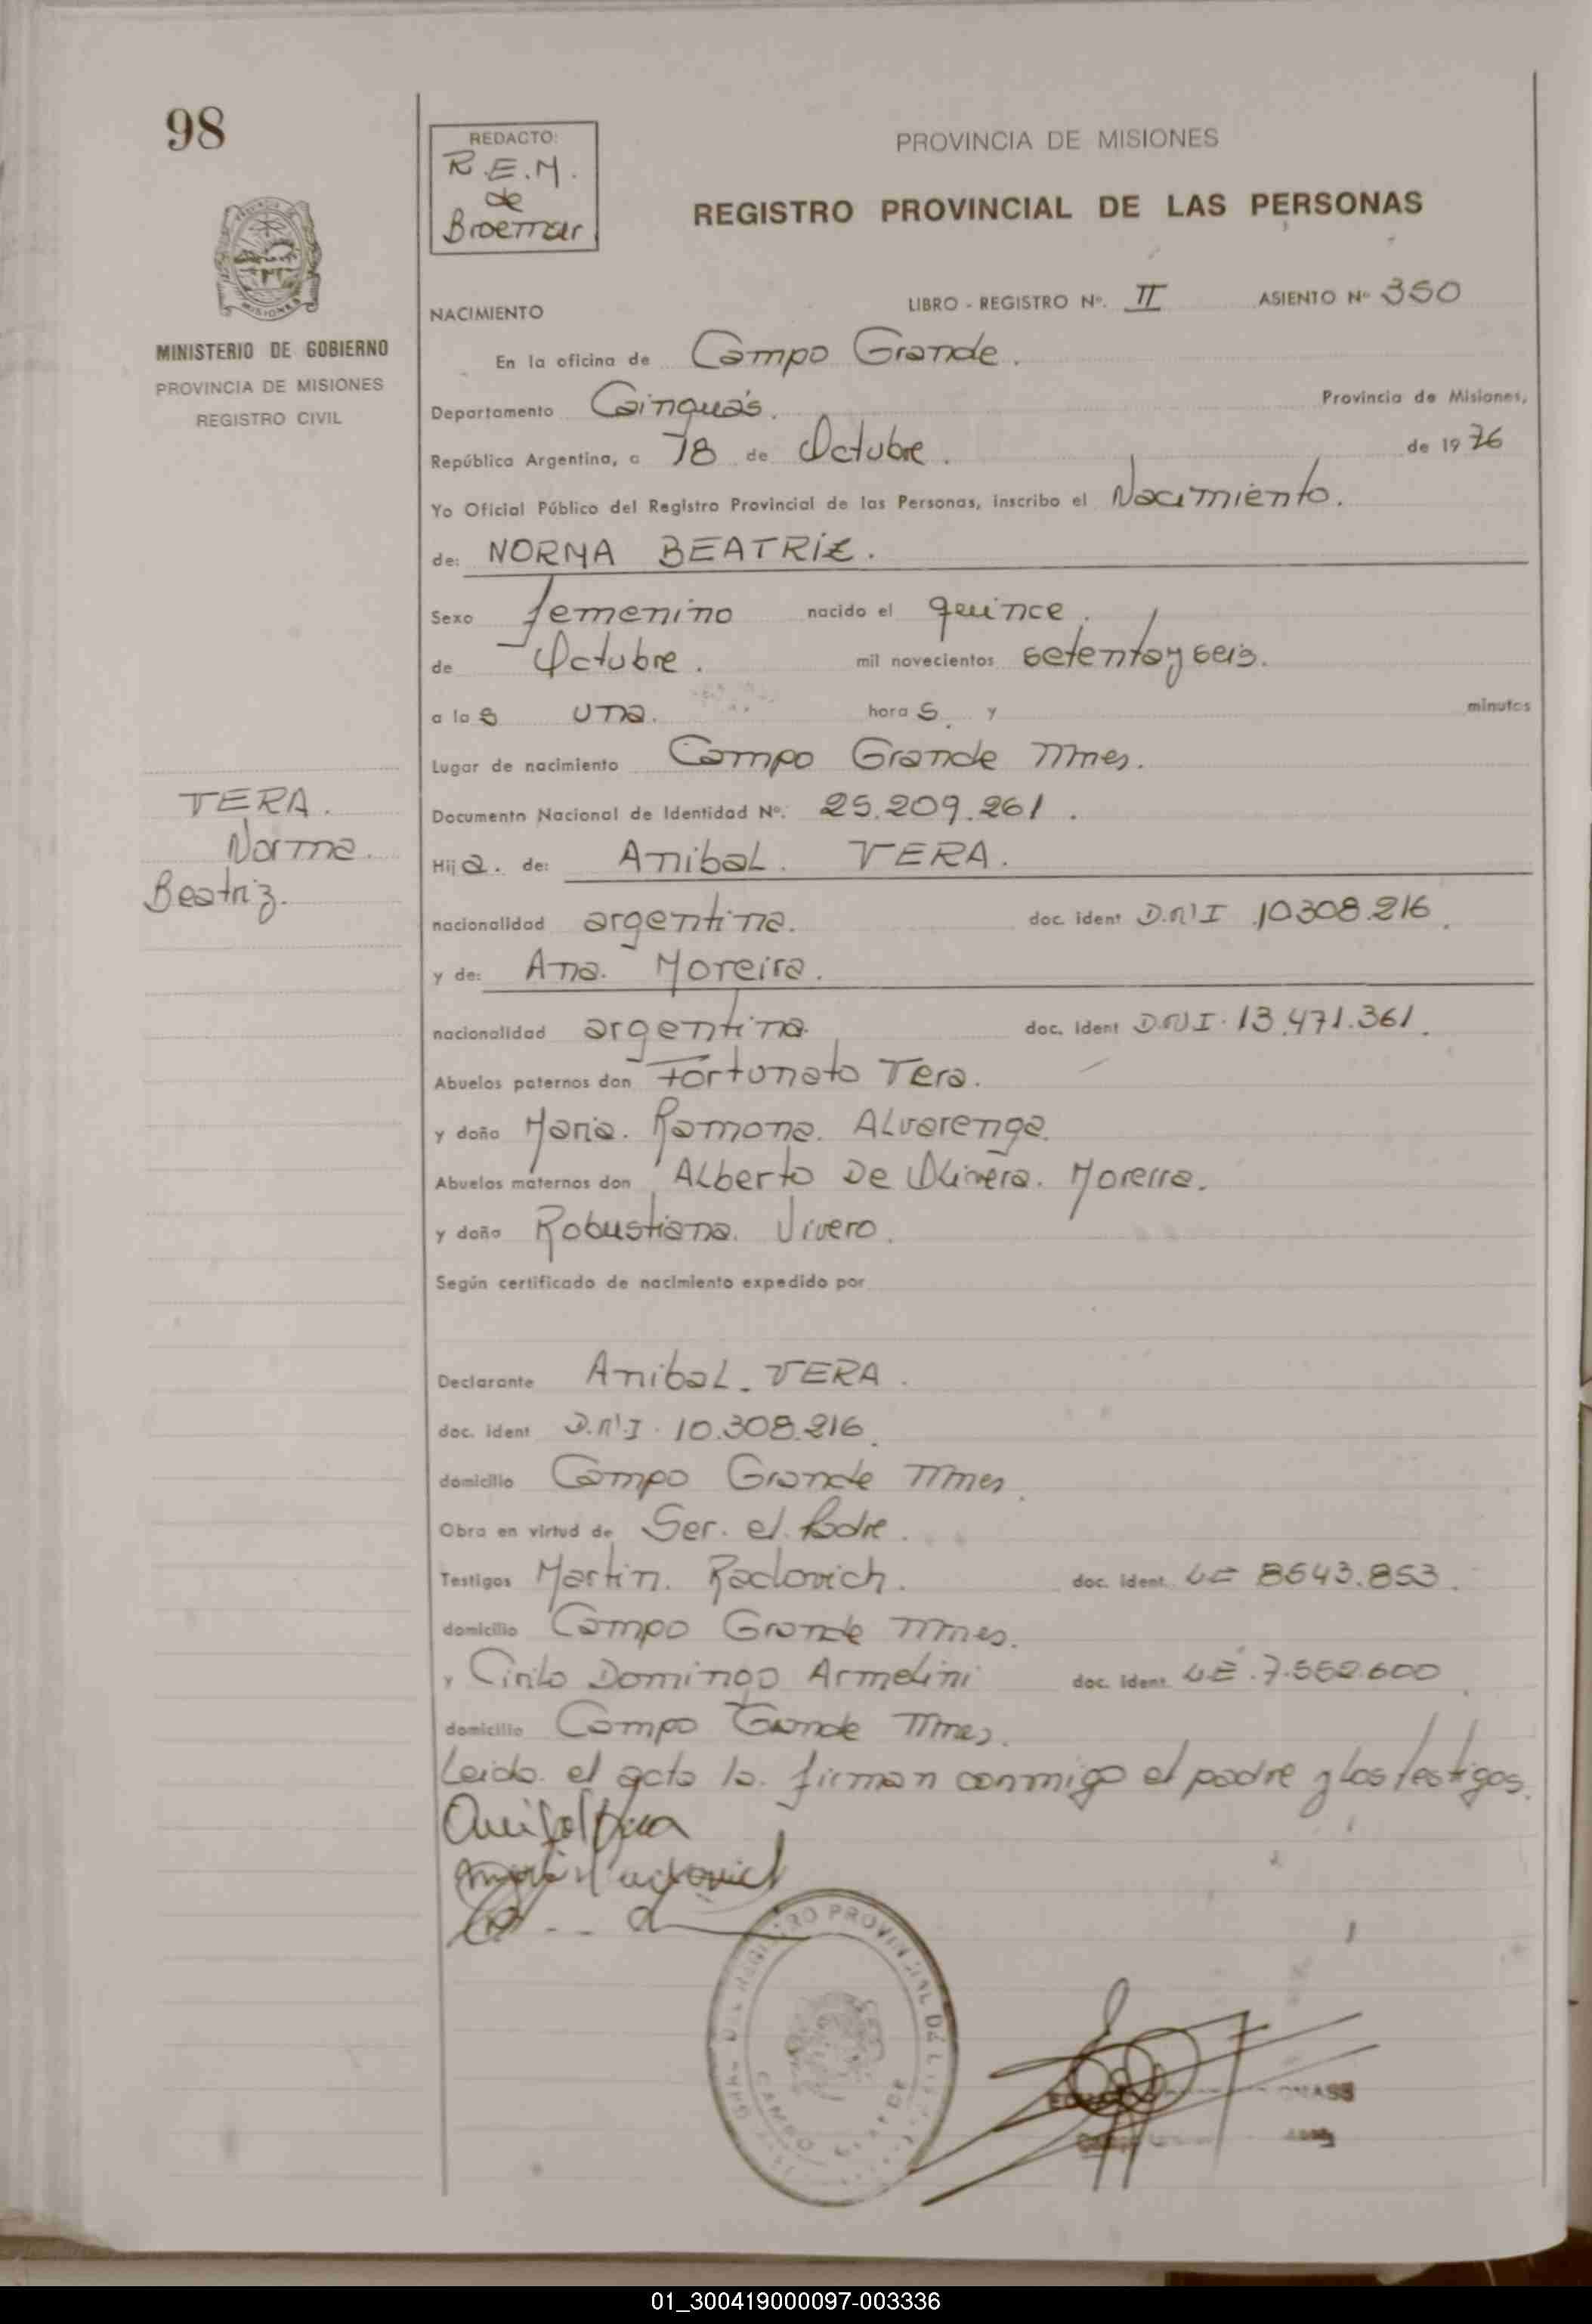 98
REDACTO:
R.E.M.
de
Broemser
PROVINCIA DE MISIONES
REGISTRO PROVINCIAL DE LAS PERSONAS
MINISTERIO DE GOBIERNO
PROVINCIA DE MISIONES
REGISTRO CIVIL
NACIMIENTO LIBRO - REGISTRO Nº. II ASIENTO Nº 350
En la oficina de Campo Grande.
Departamento Cainguás. Provincia de Misiones,
República Argentina, a 18 de Octubre. de 1976
Yo Oficial Público del Registro Provincial de las Personas, inscribo el Nacimiento.
de: NORMA BEATRIZ.
Sexo femenino nacido el quince.
de Octubre. mil novecientos setenta y seis.
a las una. horas y minutos
Lugar de nacimiento Campo Grande Mnes.
Documento Nacional de Identidad Nº. 25.209.261.
VERA.
Norma.
Beatriz.
Hija. de: Anibal. VERA.
nacionalidad argentina. doc. ident D.N.I 10308.216.
y de: Ana. Moreira.
nacionalidad argentina doc. ident D.N.I. 13.471.361.
Abuelos paternos don Fortunato Vera.
y doña Maria. Ramona. Alvarenga.
Abuelos maternos don Alberto De Olivera. Moreira.
y doña Robustiana. Vivero.
Según certificado de nacimiento expedido por
Declarante Anibal. VERA.
doc. ident D.N.I. 10.308.216.
domicilio Campo Grande Mnes.
Obra en virtud de Ser. el Padre.
Testigos Martin. Radovich. doc. ident. LE 8643.853.
domicilio Campo Grande Mnes.
y Cirilo Domingo Armelini doc. ident. LE. 7.552.600
domicilio Campo Grande Mnes.
Leida. el acta la. firman conmigo el padre y los testigos.
Anibal Vera
01_300419000097-003336